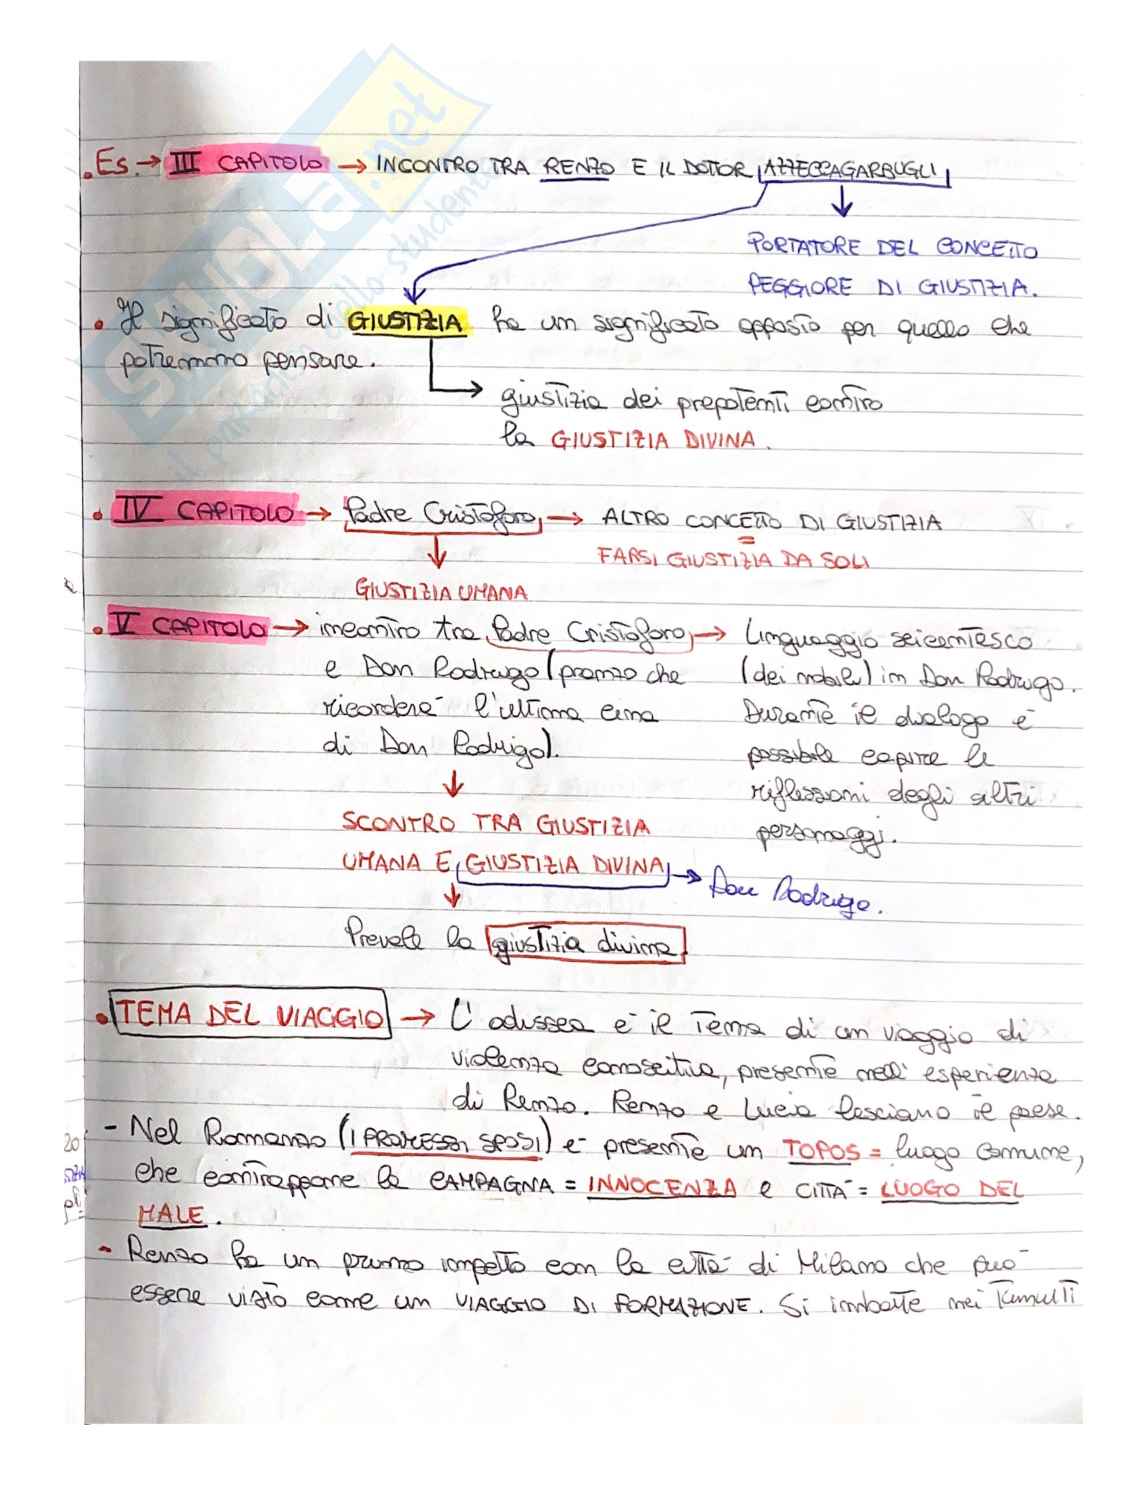 . Es. → III CAPITOLO → INCONTRO TRA RENZO E IL DOTTOR AZZECCAGARBUGLI
PORTATORE DEL CONCETTO
PEGGIORE DI GIUSTIZIA.
• Il significato di GIUSTIZIA ha un significato opposto per quello che
potremmo pensare.
giustizia dei prepotenti contro
la GIUSTIZIA DIVINA.
• IV CAPITOLO → Padre Cristoforo → ALTRO CONCETTO DI GIUSTIZIA
=
FARSI GIUSTIZIA DA SOLI
GIUSTIZIA UMANA
• V CAPITOLO → incontro tra Padre Cristoforo → Linguaggio seicentesco
e Don Rodrigo (pranzo che (dei nobili) in Don Rodrigo.
ricorderà l'ultima cena Durante il dialogo è
di Don Rodrigo). possibile capire le
riflessioni degli altri
SCONTRO TRA GIUSTIZIA personaggi.
UMANA E GIUSTIZIA DIVINA → Don Rodrigo.
Prevale la giustizia divina
• TEMA DEL VIAGGIO → L'odissea è il tema di un viaggio di
violenza conoscitiva, presente nell'esperienza
di Renzo. Renzo e Lucia lasciano il paese.
- Nel Romanzo (I PROMESSI SPOSI) è presente un TOPOS = luogo comune,
che contrappone la CAMPAGNA = INNOCENZA e CITTÀ = LUOGO DEL
MALE.
- Renzo ha un primo impatto con la città di Milano che può
essere visto come un VIAGGIO DI FORMAZIONE. Si imbatte nei Tumulti
SKUOLA.net
il paradiso dello studente